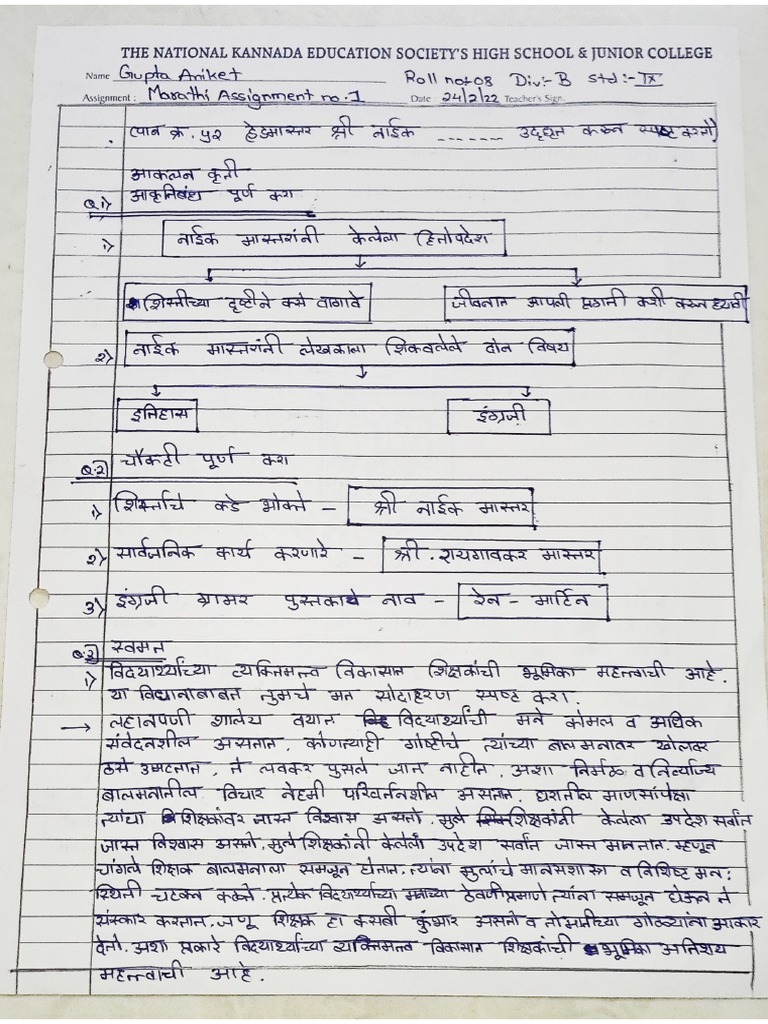 THE NATIONAL KANNADA EDUCATION SOCIETY'S HIGH SCHOOL & JUNIOR COLLEGE
Name Gupta Aniket Roll no:-08 Div:- B Std:- IX
Assignment : Marathi Assignment no. 1 Date 24/2/22 Teacher's Sign.
(पान क्र. ५२ हेडमास्तर श्री नाईक ...... उद्धृत करून स्पष्ट करतो)
आकलन कृती
Q1) आकृतिबंध पूर्ण करा
1) नाईक मास्तरांनी केलेला हितोपदेश
शिस्तीच्या दृष्टीने कसे वागावे जीवनात आपली प्रगती कशी करून घ्यावी
2) नाईक मास्तरांनी लेखकाला शिकवलेले दोन विषय
इतिहास इंग्रजी
Q.2 चौकटी पूर्ण करा
1) शिस्तीचे कडे भोक्ते – श्री नाईक मास्तर
2) सार्वजनिक कार्य करणारे – श्री. रायगावकर मास्तर
3) इंग्रजी ग्रामर पुस्तकाचे नाव – रेन - मार्टिन
Q.3 स्वमत
1) विद्यार्थ्यांच्या व्यक्तिमत्त्व विकासात शिक्षकांची भूमिका महत्त्वाची आहे.
या विधानाबाबत तुमचे मत सोदाहरण स्पष्ट करा.
→ लहानपणी शालेय वयात विद्यार्थ्यांची मने कोमल व अधिक
संवेदनशील असतात. कोणत्याही गोष्टीचे त्यांच्या बालमनावर खोलवर
ठसे उमटतात. ते लवकर पुसले जात नाहीत. अशा निर्मळ व निर्व्याज्य
बालमनातील विचार नेहमी परिवर्तनशील असतात. घरातील माणसांपेक्षा
त्यांचा शिक्षकांवर जास्त विश्वास असतो. मुले शिक्षकांनी केलेला उपदेश सर्वांत
जास्त विश्वास असतो. मुले शिक्षकांनी केलेला उपदेश सर्वांत जास्त मानतात. म्हणून
चांगले शिक्षक बालमनाला समजून घेतात. त्यांना मुलांचे मानसशास्त्र व विशिष्ट मन:
स्थिती चटकन कळते. प्रत्येक विद्यार्थ्याच्या मनाच्या ठेवणीप्रमाणे त्यांना समजून घेऊन ते
संस्कार करतात. जणू शिक्षक हा कसबी कुंभार असतो व तो मातीच्या गोळ्यांना आकार
देतो. अशा प्रकारे विद्यार्थ्यांच्या व्यक्तिमत्त्व विकासात शिक्षकांची भूमिका अतिशय
महत्त्वाची आहे.